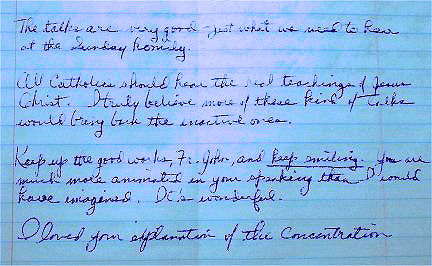 The talks are very good - just what we need to hear
at the Sunday homily.
All Catholics should hear the real teachings of Jesus
Christ. I truly believe more of these kind of talks
would bring back the inactive ones.
Keep up the good works, Fr. John, and keep smiling. You are
much more animated in your speaking than I would
have imagined. It's wonderful.
I loved your explanation of the Concentration